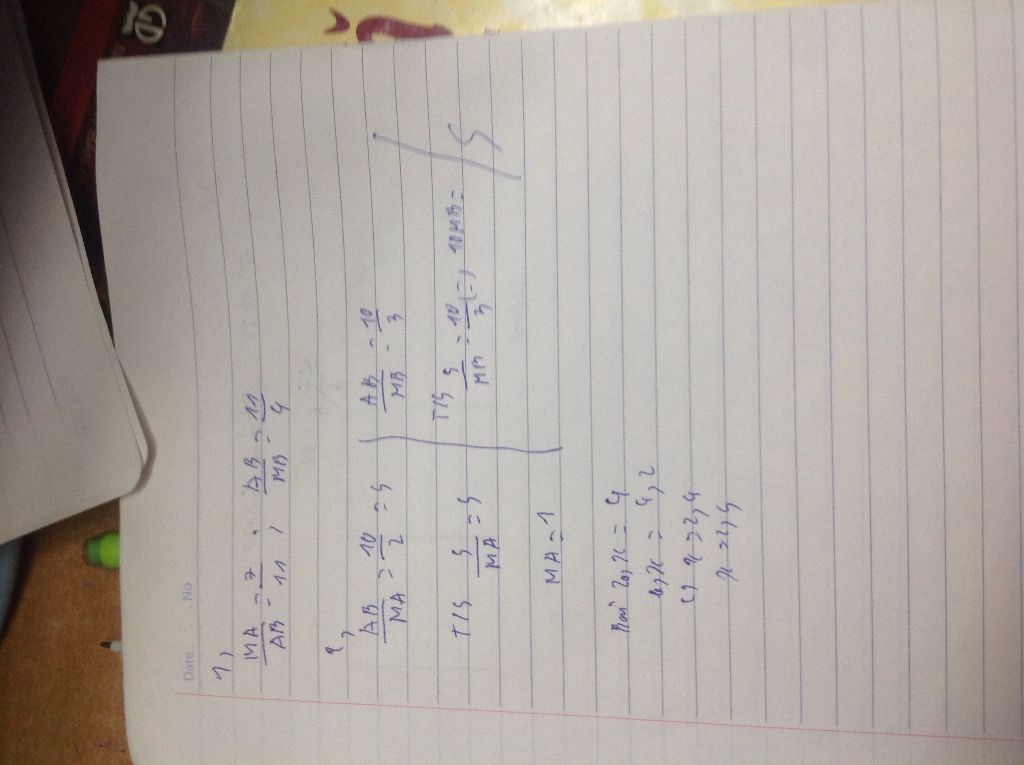 Date No
1,
MA/AB = 7/11 , AB/MB = 11/4
2,
AB/MA = 10/2 = 5 | AB/MB = 10/3
5/MA = 5 | 5/MB = 10/3 (=) 10MB =
MA = 1
Bài 2a, x = 4
b, x = 4,2
c) x = 2,4
x = 2,5